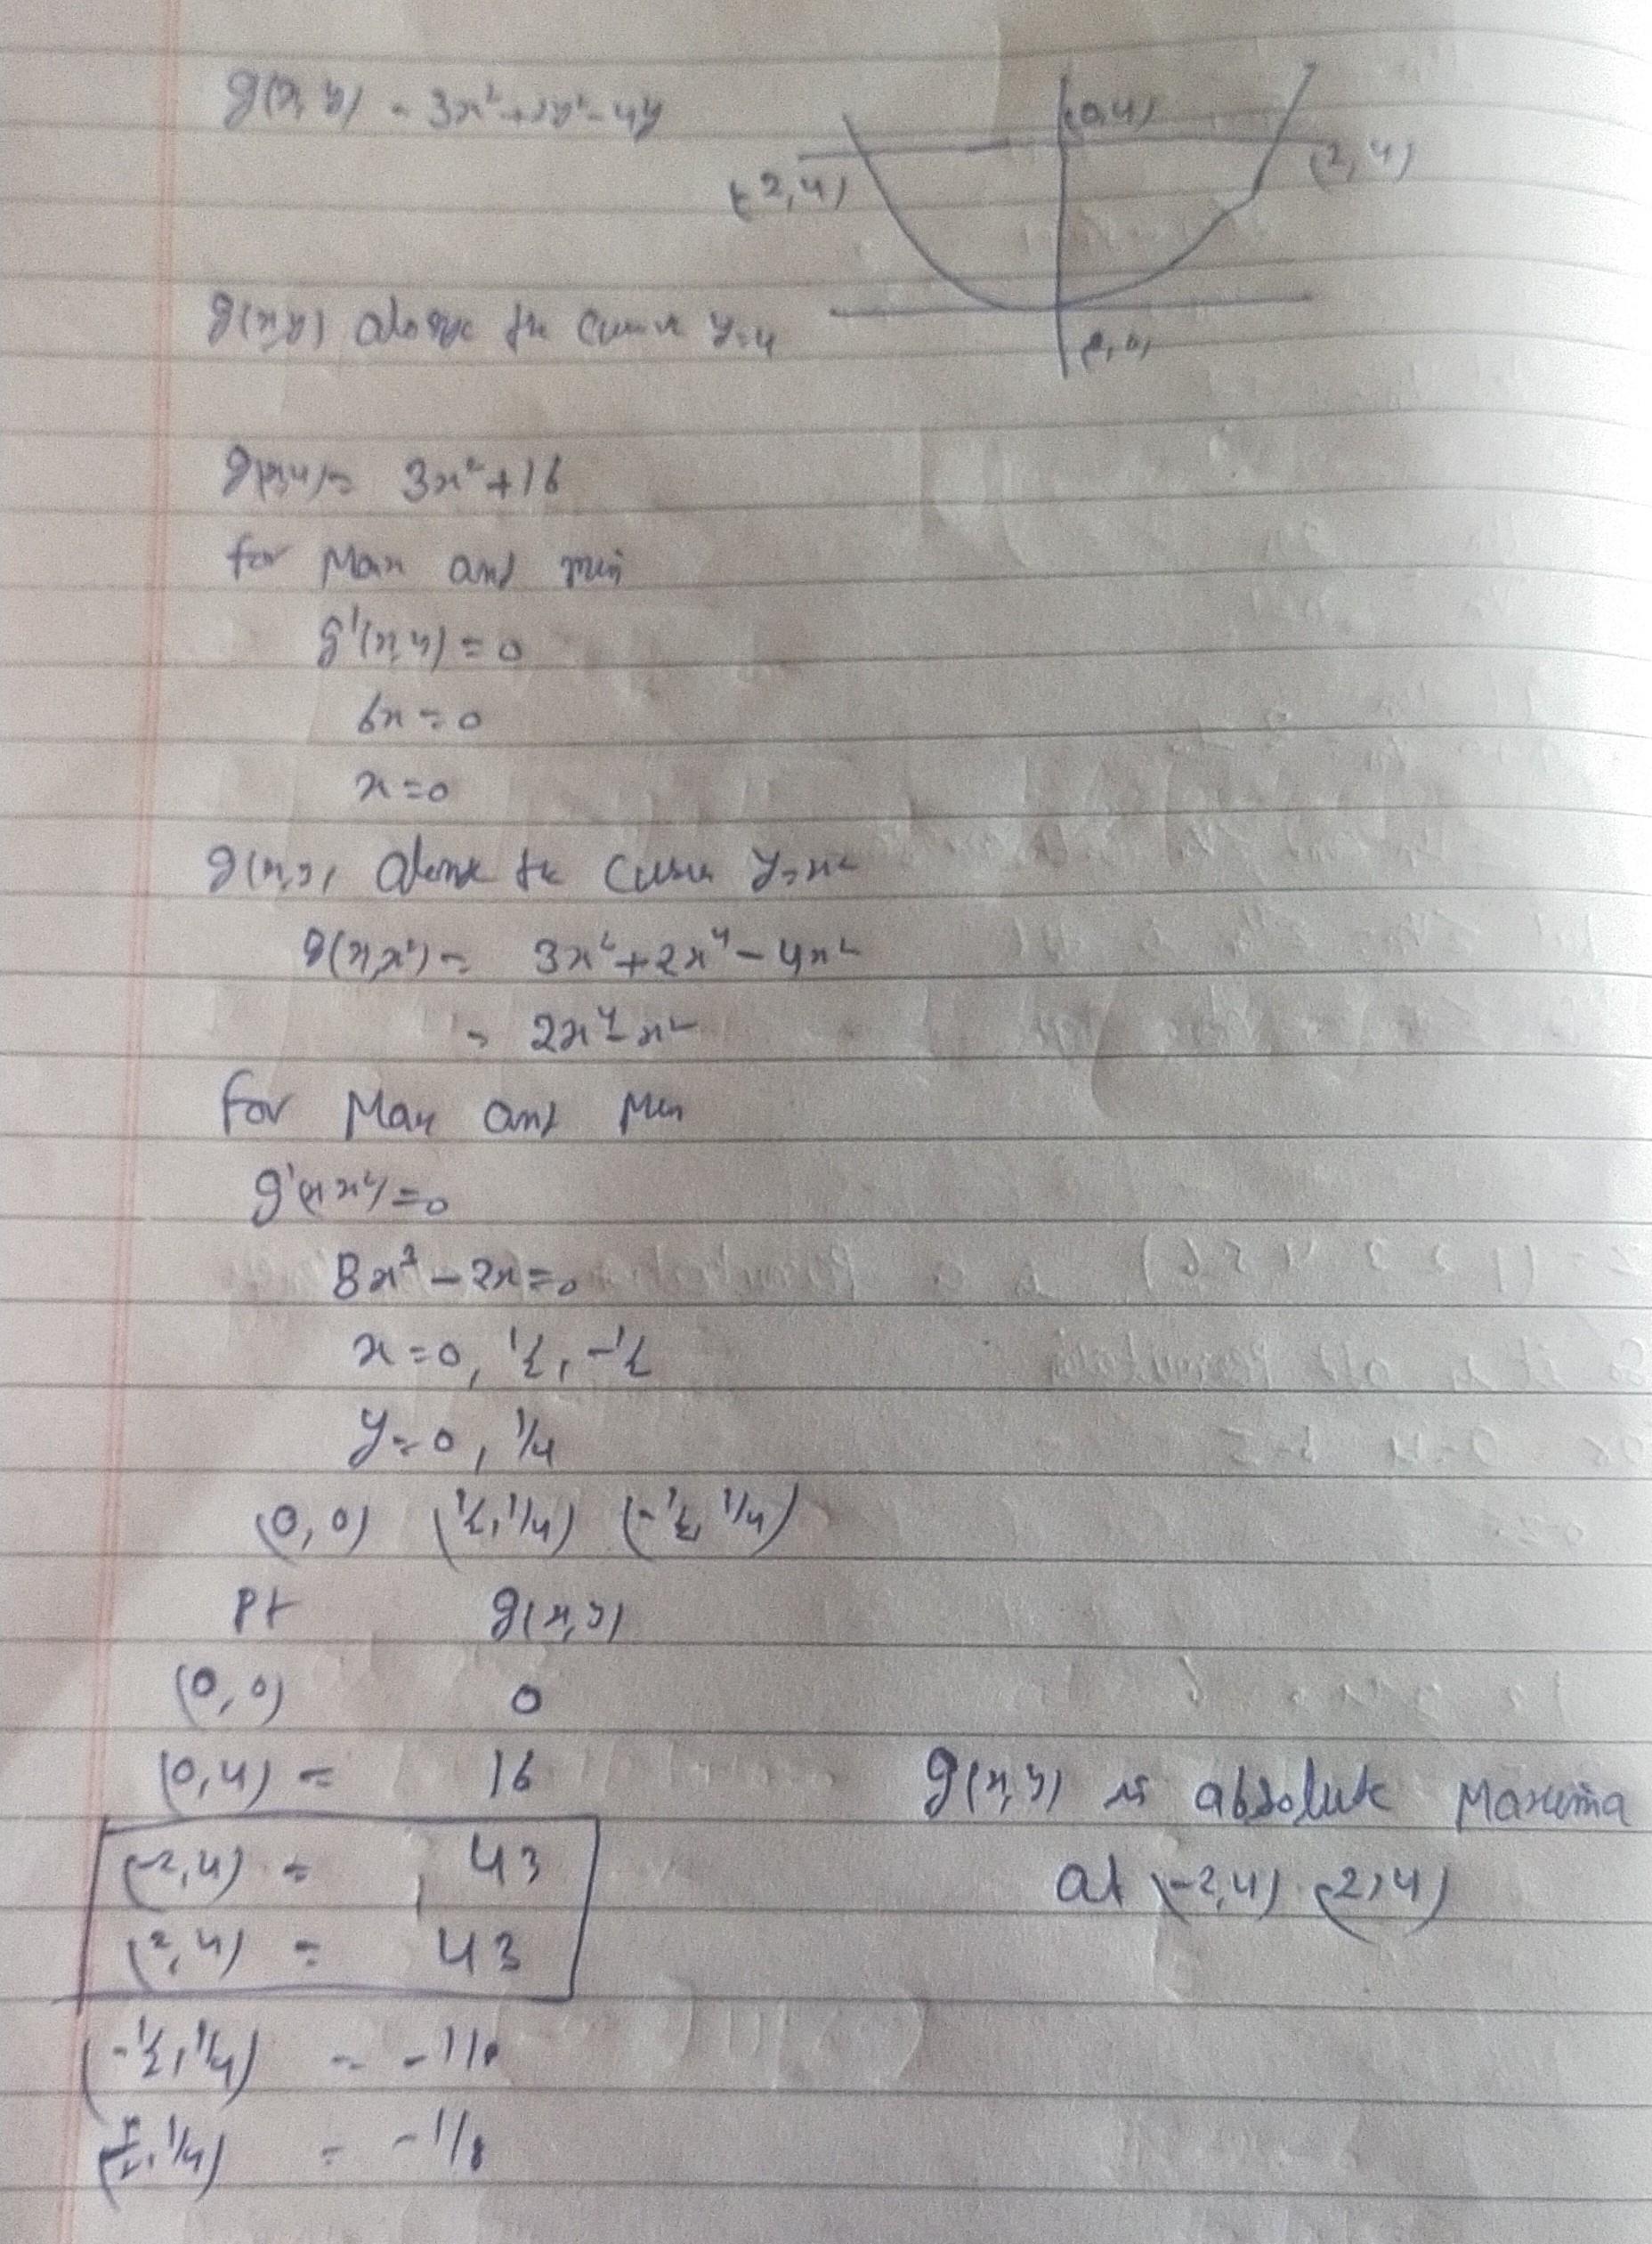 g(x,y) = 3x²+2y²-4y
(0,4)
(-2,4)
(2,4)
g(x,y) along the curve y=4
(0,0)
g(x,4) = 3x²+16
for Max and min
g'(x,4) = 0
6x = 0
x = 0
g(x,y) along the curve y=x²
g(x,x²) = 3x²+2x⁴-4x²
= 2x⁴-x²
for Max and Min
g'(x,x²) = 0
8x³-2x=0
x=0, ½, -½
y=0, 1/4
(0,0) (½,1/4) (-½,1/4)
Pt g(x,y)
(0,0) 0
(0,4) = 16
(-2,4) = 43
(2,4) = 43
(-½,1/4) = -1/8
(½,1/4) = -1/8
g(x,y) is absolute Maxima
at (-2,4) (2,4)